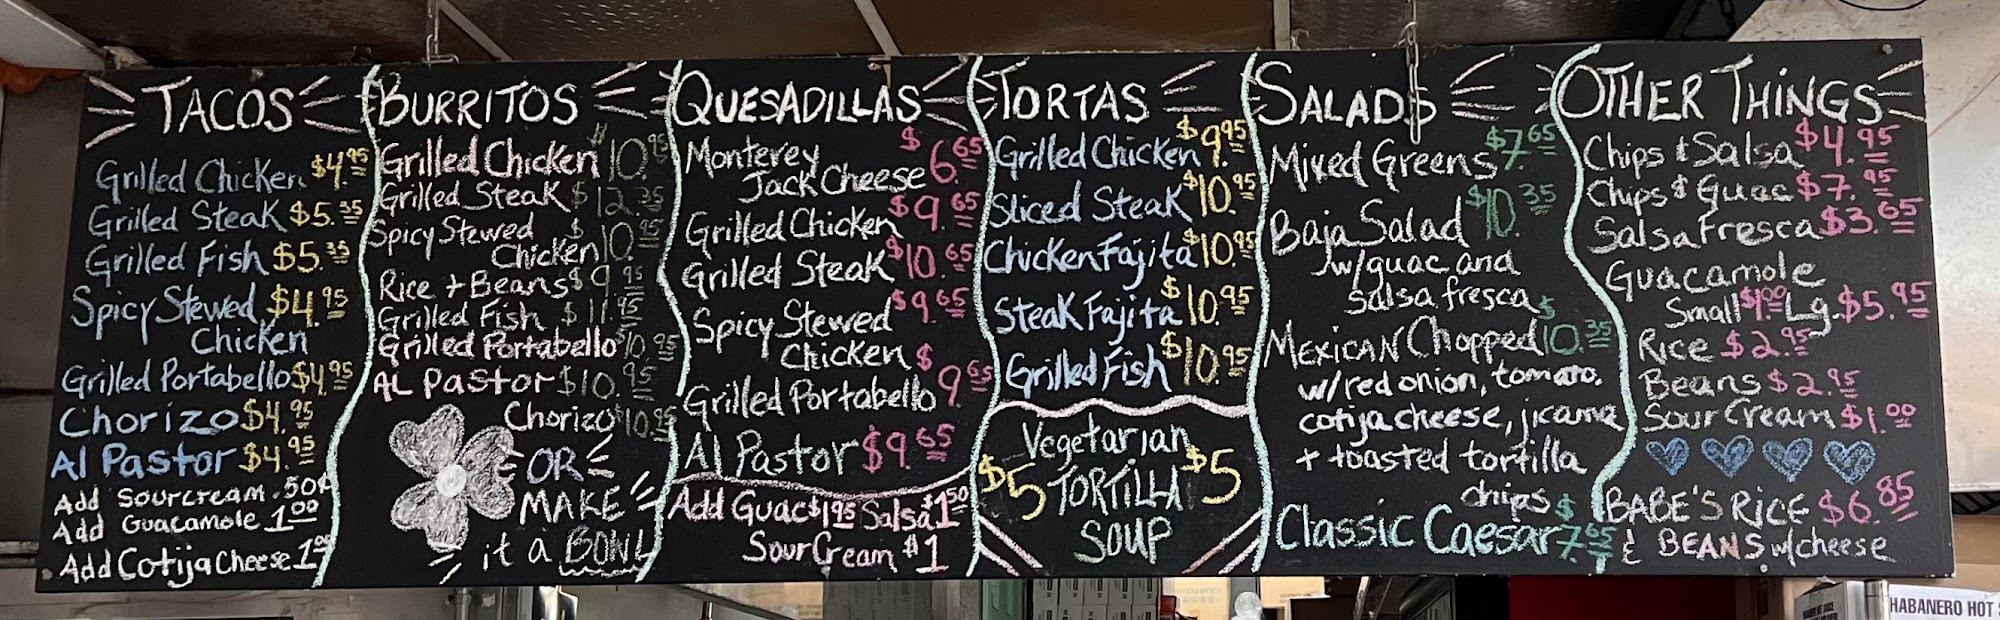 TACOS
Grilled Chicken $4.95
Grilled Steak $5.35
Grilled Fish $5.35
Spicy Stewed $4.95
Chicken
Grilled Portabello $4.95
Chorizo $4.95
Al Pastor $4.95
Add Sourcream .50¢
Add Guacamole 1.00
Add Cotija Cheese 1.00
BURRITOS
Grilled Chicken $10.95
Grilled Steak $12.35
Spicy Stewed $
Chicken 10.95
Rice + Beans $9.95
Grilled Fish $11.95
Grilled Portabello $10.95
AL Pastor $10.95
Chorizo $10.95
OR
MAKE
it a BOWL
QUESADILLAS
Monterey $
Jack Cheese 6.65
Grilled Chicken $9.65
Grilled Steak $10.65
Spicy Stewed $9.65
Chicken $
Grilled Portabello 9.65
Al Pastor $9.65
Add Guac $1.95 Salsa $1.50
Sour Cream $1
TORTAS
Grilled Chicken $9.95
Sliced Steak $10.95
Chicken Fajita $10.95
Steak Fajita $10.95
Grilled Fish $10.95
Vegetarian
$5 TORTILLA $5
SOUP
SALADS
Mixed Greens $7.65
Baja Salad $10.35
w/guac and
salsa fresca $
MEXICAN Chopped 10.35
w/red onion, tomato,
cotija cheese, jicama
+ toasted tortilla
chips $
Classic Caesar 7.65
OTHER THINGS
Chips & Salsa $4.95
Chips & Guac $7.95
Salsa Fresca $3.65
Guacamole
Small $1.00 Lg. $5.95
Rice $2.95
Beans $2.95
Sour Cream $1.00
BABE'S RICE $6.85
& BEANS w/cheese
HABANERO HOT